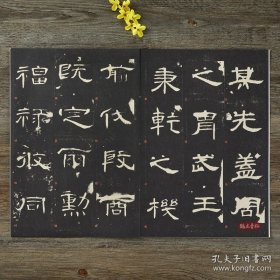 其先蓋周
之胄武王
秉乾之機
翦伐殷商
既定爾勳
福祿攸同
孔夫子旧书网